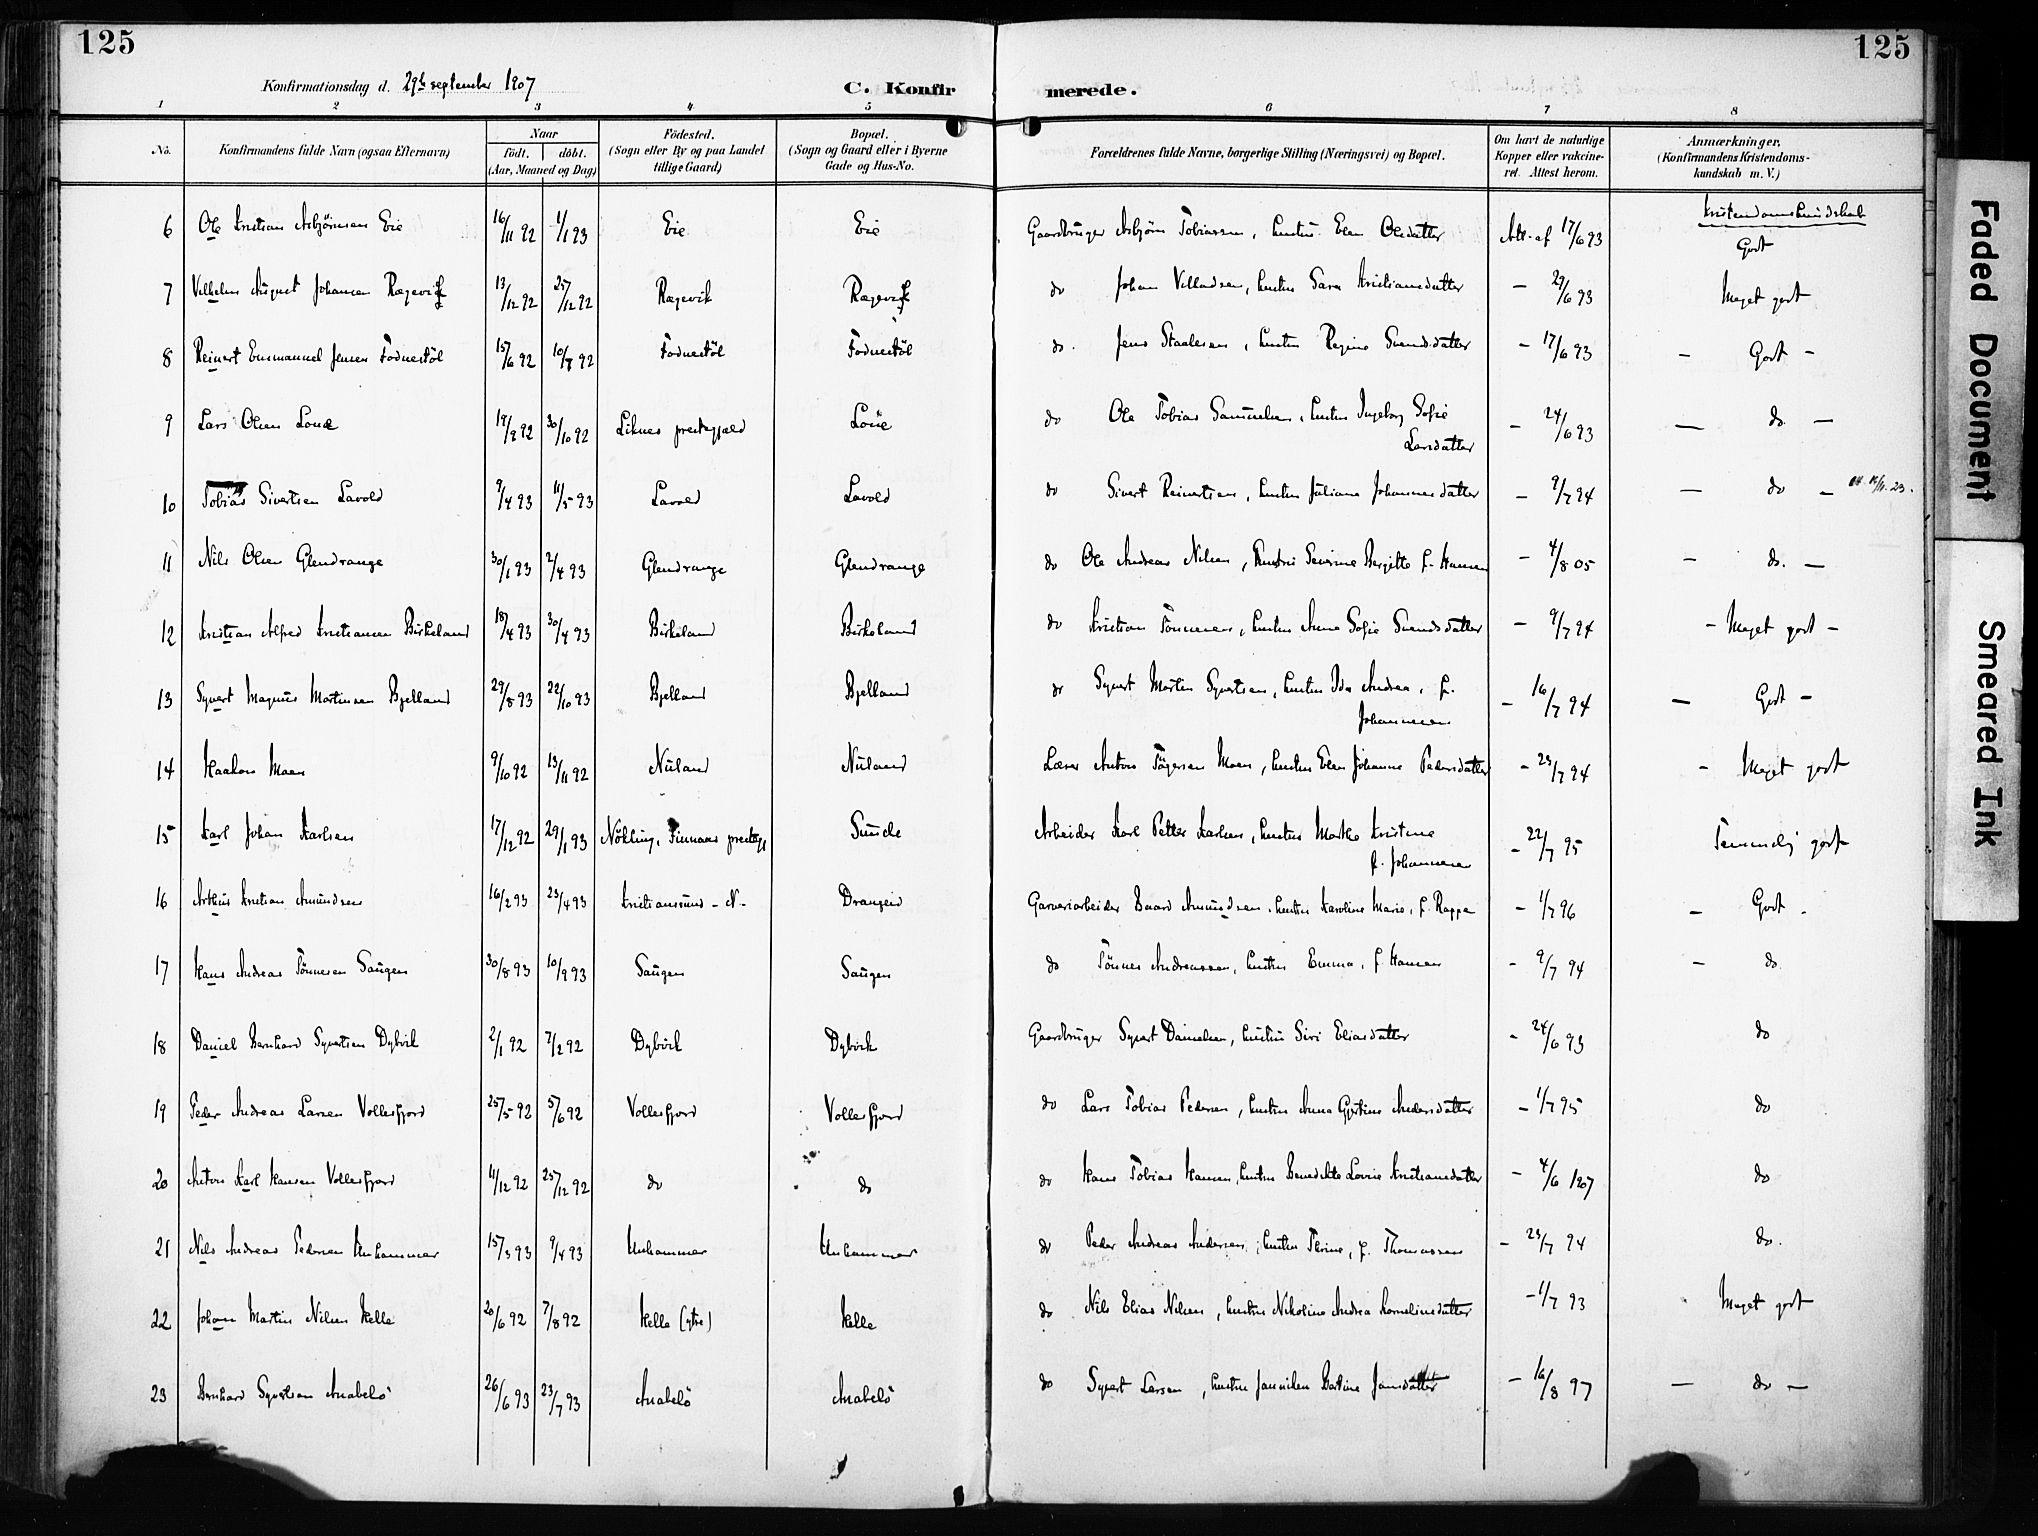 125
125
Konfirmationsdag d. 29de september 1907
C. Konfir
merede.
1 2 3 4 5 6 7 8
No.
Konfirmandens fulde Navn (ogsaa Efternavn)
Naar
födt. | döbt.
(Aar, Maaned og Dag)
Födested.
(Sogn eller By og paa Landet
tillige Gaard)
Bopæl.
(Sogn og Gaard eller i Byerne
Gade og Hus-No.
Forældrenes fulde Navne, borgerlige Stilling (Næringsvei) og Bopæl.
Om havt de naturlige
Kopper eller vakcine-
ret. Attest herom.
Anmærkninger.
(Konfirmandens Kristendoms-
kundskab m. V.)
Kristendomskundskab
6 Ole Kristian Asbjörnsen Eie 16/11 92 1/1 93 Eie Eie Gaardbruger Asbjörn Tobiassen, hustru Elen Olesdatter Att. af 17/6 93 Godt
7 Vilhelm August Johansen Rægevik 13/12 92 25/12 92 Rægevik Rægevik do Johan Villadsen, hustru Sara Kristiansdatter — 29/6 93 Meget godt
8 Reinert Emmanuel Jensen Fodnestöl 15/6 92 10/7 92 Fodnestöl Fodnestöl do. Jens Staalesen, hustru Regine Svendsdatter — 17/6 93 — Godt —
9 Lars Olsen Loue 30/10 92 Liknes prestegjæld Loue do Ole Tobias Samuelsen, hustru Ingeborg Sofie
Larsdatter — 24/6 93 — do. —
10 Tobias Sivertsen Lavold 9/4 93 11/5 93 Lavold Lavold do Sivert Reinertsen, hustru Juliane Johannesdatter — 9/7 94 — do —
11 Nils Olsen Glendrange 30/1 93 2/4 93 Glendrange Glendrange do Ole Andreas Nilsen, hustru Severine Bergitte f. Hansen — 4/8 05 — do. —
12 Kristian Alfred Kristiansen Birkeland 18/4 93 30/4 93 Birkeland Birkeland do Kristian Tönnesen, hustru Anne Sofie Svendsdatter — 9/7 94 — Meget godt —
13 Syvert Magnus Martinsen Bjelland 29/8 93 22/10 93 Bjelland Bjelland do Syvert Martin Syvertsen, hustru Ida Andrea, f.
Johannesen — 16/7 94 — Godt —
14 Haakon Moen 9/10 92 13/11 92 Nuland Nuland Lærer Anton Törgersen Moen, hustru Elen Johanne Pedersdatter — 23/7 94 — Meget godt
15 Karl Johan Karlsen 17/12 92 29/1 93 Nökling, Finnaas prestegj Sunde Arbeider Karl Petter Karlsen, hustru Martha Kristine
f. Johannesen — 22/7 95 Temmelig godt
16 Arthur Kristian Amundsen 16/2 93 23/4 93 Kristianssund - N. Drangeid Garveriarbeider Baard Amundsen, hustru Karoline Marie, f. Rappe — 1/7 96 — Godt.
17 Hans Andreas Tönnesen Saugen 30/8 93 10/9 93 Saugen Saugen do Tönnes Andreassen, hustru Emma, f. Hansen — 9/7 94 — do.
18 Daniel Bernhard Syvertsen Dybvik 2/1 92 7/2 92 Dybvik Dybvik Gaardbruger Syvert Danielsen, hustru Siri Eliasdatter — 24/6 93 do
19 Peder Andreas Larsen Vollesfjord 25/5 92 5/6 92 Vollesfjord Vollesfjord do Lars Tobias Pedersen, hustru Anna Gjertine Andersdatter — 1/7 95 do
20 Anton Karl Hansen Vollesfjord 11/12 92 25/12 92 do do do Hans Tobias Hansen, hustru Benedikte Lovise Kristiansdatter — 4/6 1907 do
21 Nils Andreas Pedersen Unhammer 15/3 93 9/4 93 Unhammer Unhammer do Peder Andreas Andersen, hustru Terine, f. Thomassen — 23/7 94 do.
22 Johan Martin Nilsen Helle 20/6 92 7/8 92 Helle (ytre) Helle do Nils Elias Nilsen, hustru Nikoline Andrea Korneliusdatter — 1/7 93 Meget godt
23 Bernhard Syvertsen Anabelö 26/6 93 23/7 93 Anabelö Anabelö do Syvert Larsen, hustru Janniken Bertine Jansdatter — 16/8 97 — do —
Faded Document
Smeared Ink